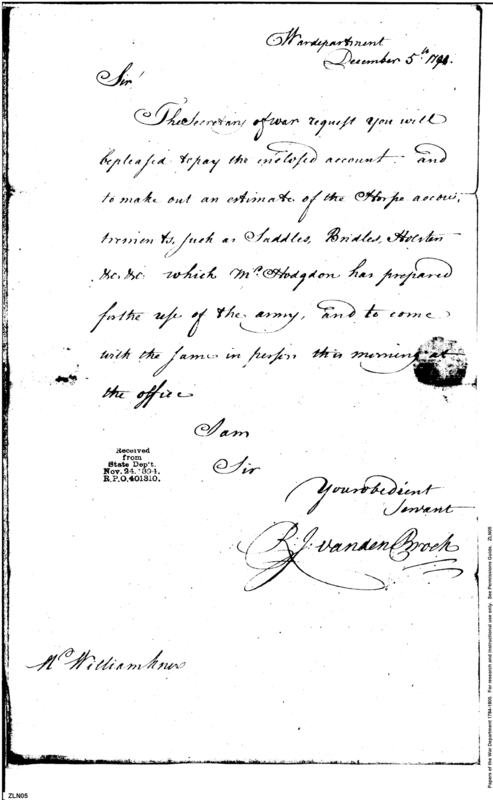 Wardepartment
December 5th 1794.
Sir
The Secretary of war request you will
be pleased to pay the inclosed account. and
to make out an estimate of the Horse accou,
trements, such as Saddles, Bridles, Holsters
&c. &c. which Mr. Hodgdon has prepared
for the use of the army, and to come
with the same in person this morning at
the office
I am
Sir
Your obedient
Servant
R. J. vanden Broek
Received
from
State Dep't.
Nov. 24. '894.
R.P.O,401310.
Mr William
Papers of the War Department 1784-1800. For research and instructional use only. See Permissions Guide. ZLN05
ZLN05